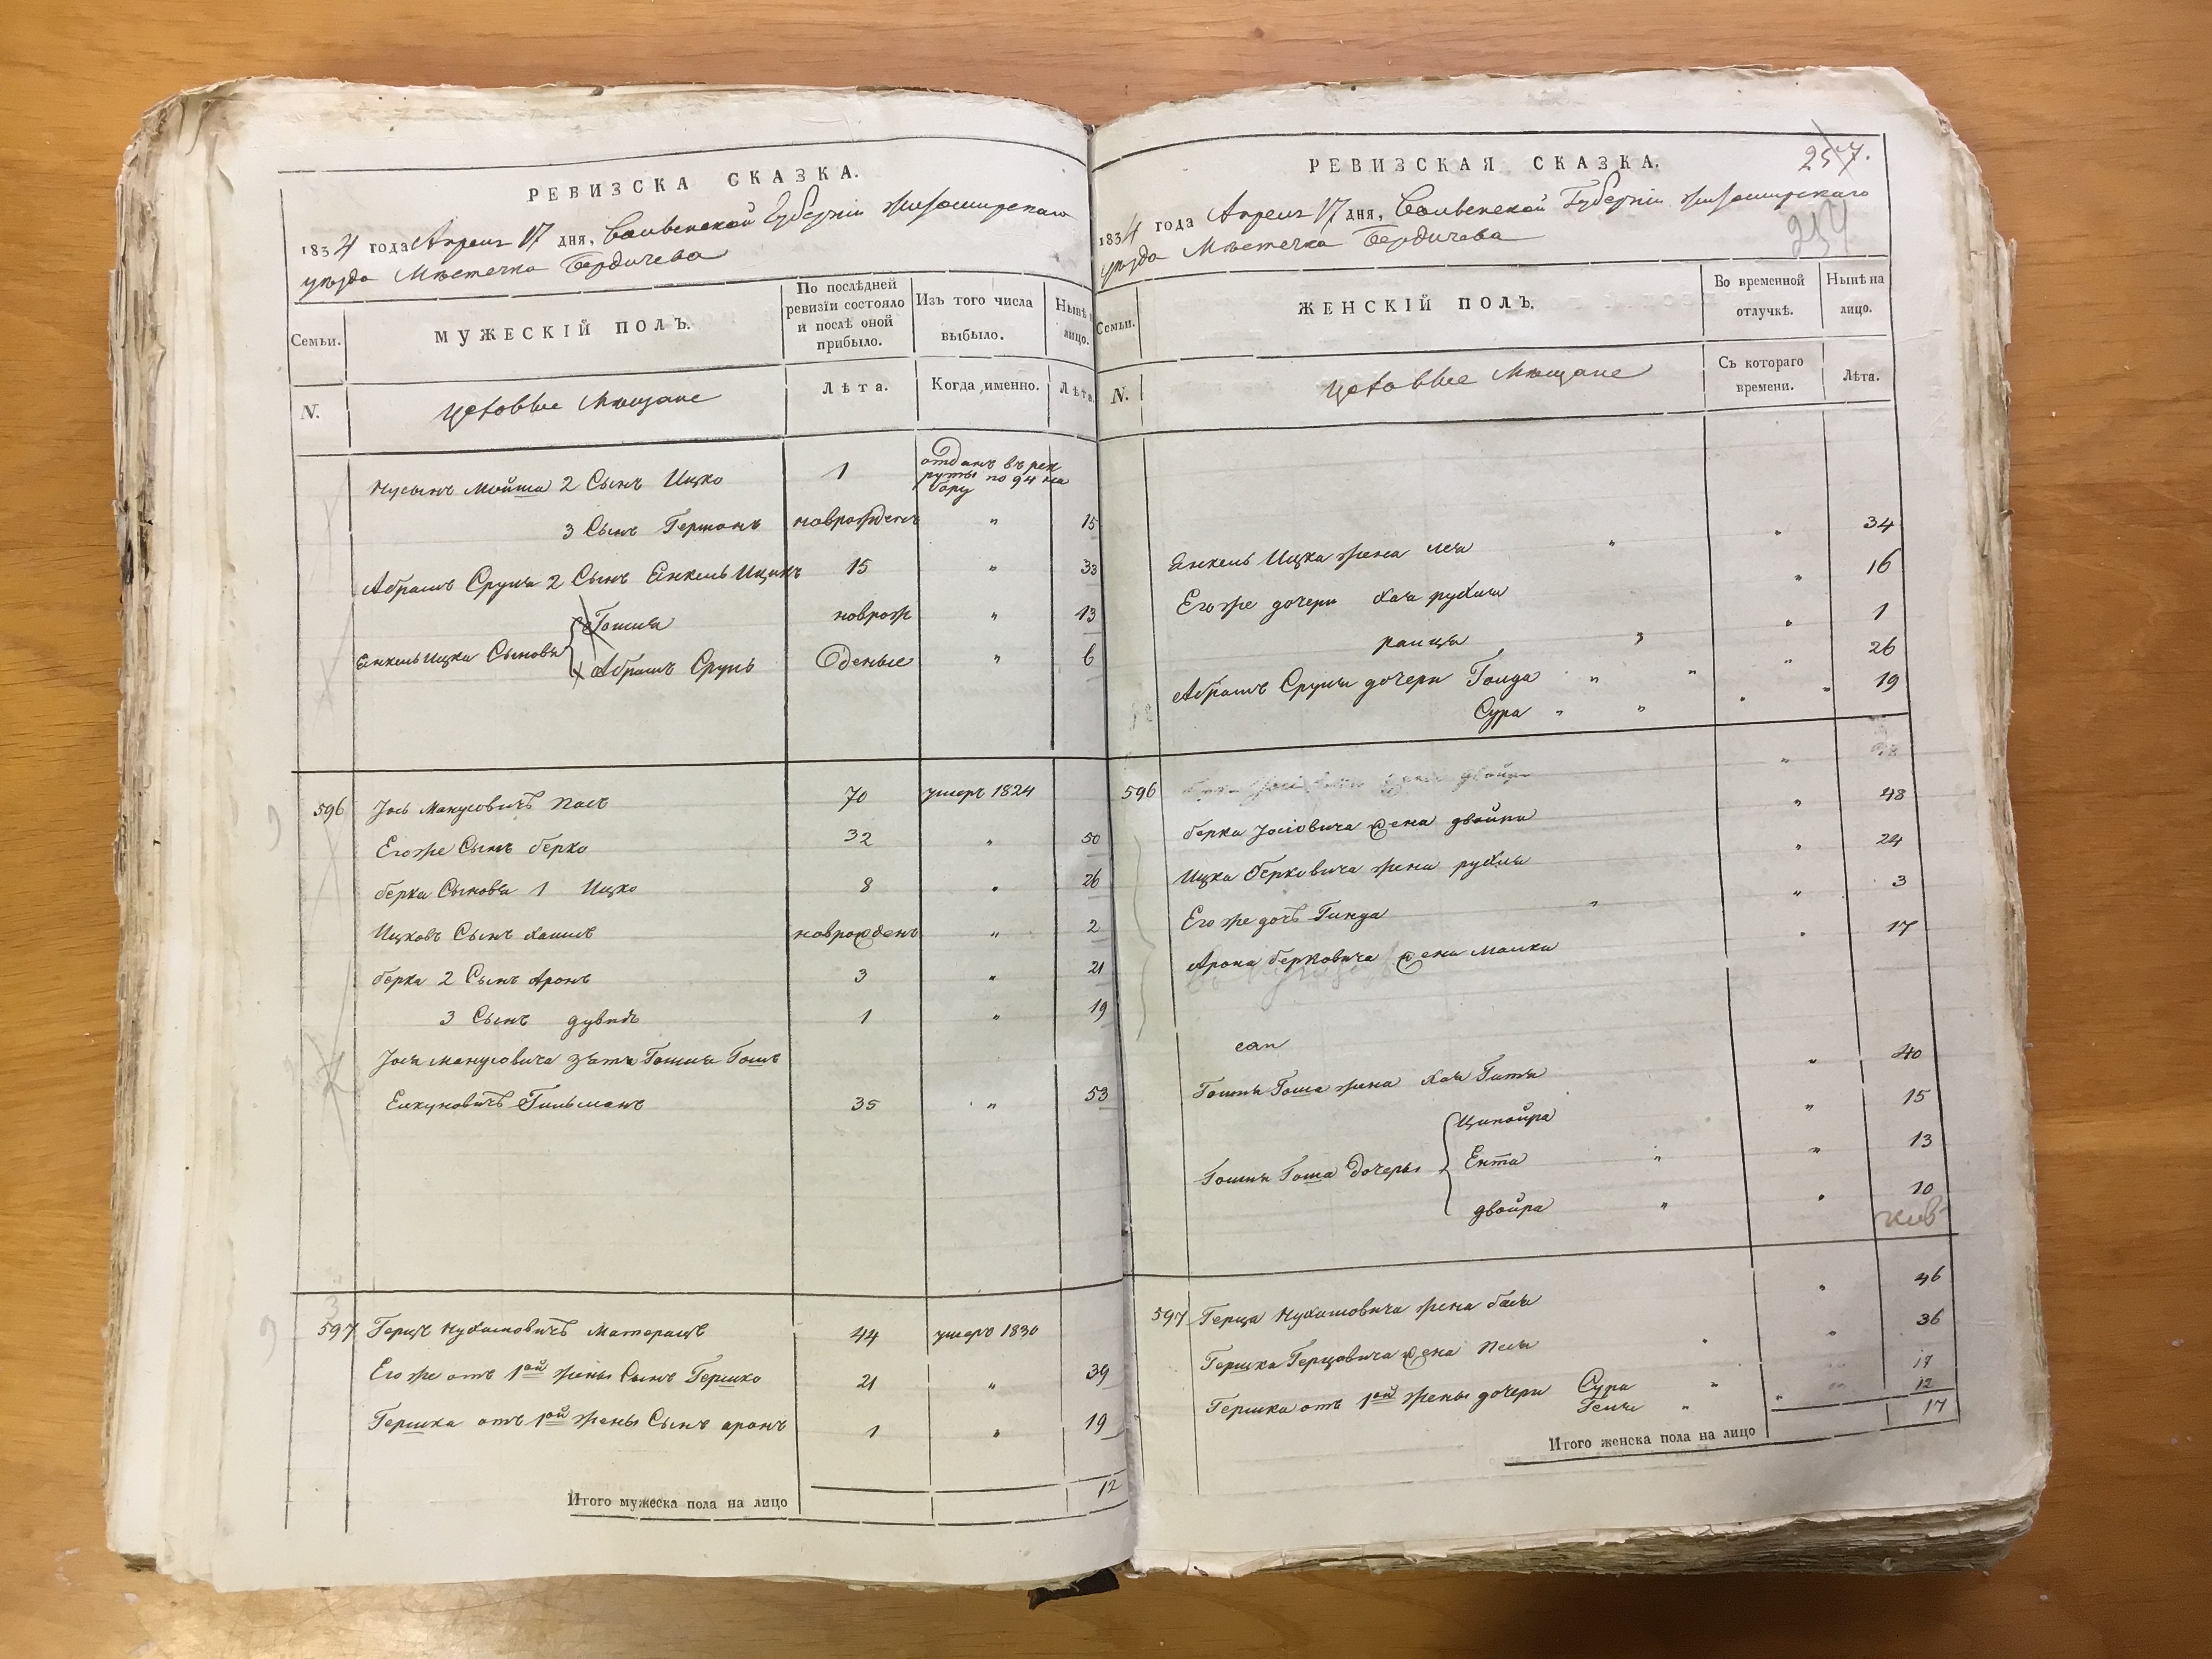 РЕВИЗСКА СКАЗКА.
1834 года Апреля 17 дня, Волынской Губернiи Житомирскаго
уѣзда Мѣстечка Бердичева
Семьи.
МУЖЕСКIЙ ПОЛЪ.
По послѣдней
ревизiи состояло
и послѣ оной
прибыло.
Изъ того числа
выбыло.
Нынѣ
лицо.
N.
Цеховые Мещане
Лѣта.
Когда именно.
Лѣта
отданъ въ рек
Нусынъ Мойша 2 Сынъ Ицко 1 руты по 94 на
бору
3 Сынъ Гершонъ новрожденъ " 15
Абрамъ Сруля 2 Сынъ Янкель Ицикъ 15 " 33
новрож " 13
Янкель Ицка Сыновья
Абрамъ Сруль деные " 6
596 Iось Манусовичъ 70 умеръ 1824
Его же Сынъ берко 32 " 50
берка Сыновья 1 Ицко 8 " 26
Ицковъ Сынъ хаимъ новрожденъ " 2
берка 2 Сынъ Аронъ 3 " 21
3 Сынъ дувидъ 1 " 19
Iося манусовича зять
Гильманъ 35 " 53
597 Герцъ Нухимовичъ 44 умеръ 1830
Его же отъ 1ой жены Сынъ Гершко 21 " 39
Гершка отъ 1ой жены Сынъ аронъ 1 " 19
Итого мужеска пола на лицо 12
РЕВИЗСКАЯ СКАЗКА.
257.
1834 года Апреля 17 дня, Волынской Губернiи Житомирскаго
уѣзда Мѣстечка Бердичева
257
Семьи.
ЖЕНСКIЙ ПОЛЪ.
Во временной
отлучкѣ.
Нынѣ на
лицо.
N.
Цеховые Мещане
Съ котораго
времени.
Лѣта.
Янкель Ицка жена лея " " 34
Его же дочери хая рухля " 16
" " 1
Абрамъ Сруля дочери Голда " " " 26
Сура " " " " 19
596
берка Iосiовича жена двойра " 48
Ицка берковича жена рухля " 24
Его же дочь Гинда " " 3
Арона берковича жена малка " 17
жена хая Гитля " 40
Ципойра " 15
дочеры Ента " " 13
двойра " " 10
597 Герца Нухимовича жена бася " 46
Гершка Герцовича жена Песя " " 36
Гершка отъ 1ой жены дочери Сура " 17
" " 12
Итого женска пола на лицо 17